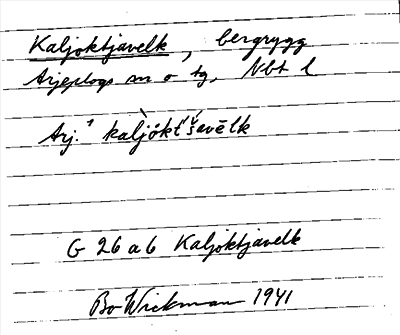 Kaljoktjavelk, bergrygg
Arjeplogs sn o tg, Nbt l
Arj.¹ kaľjòkt́'šavēlk
G 26 a 6 Kaljoktjavelk
Bo Wickman 1941